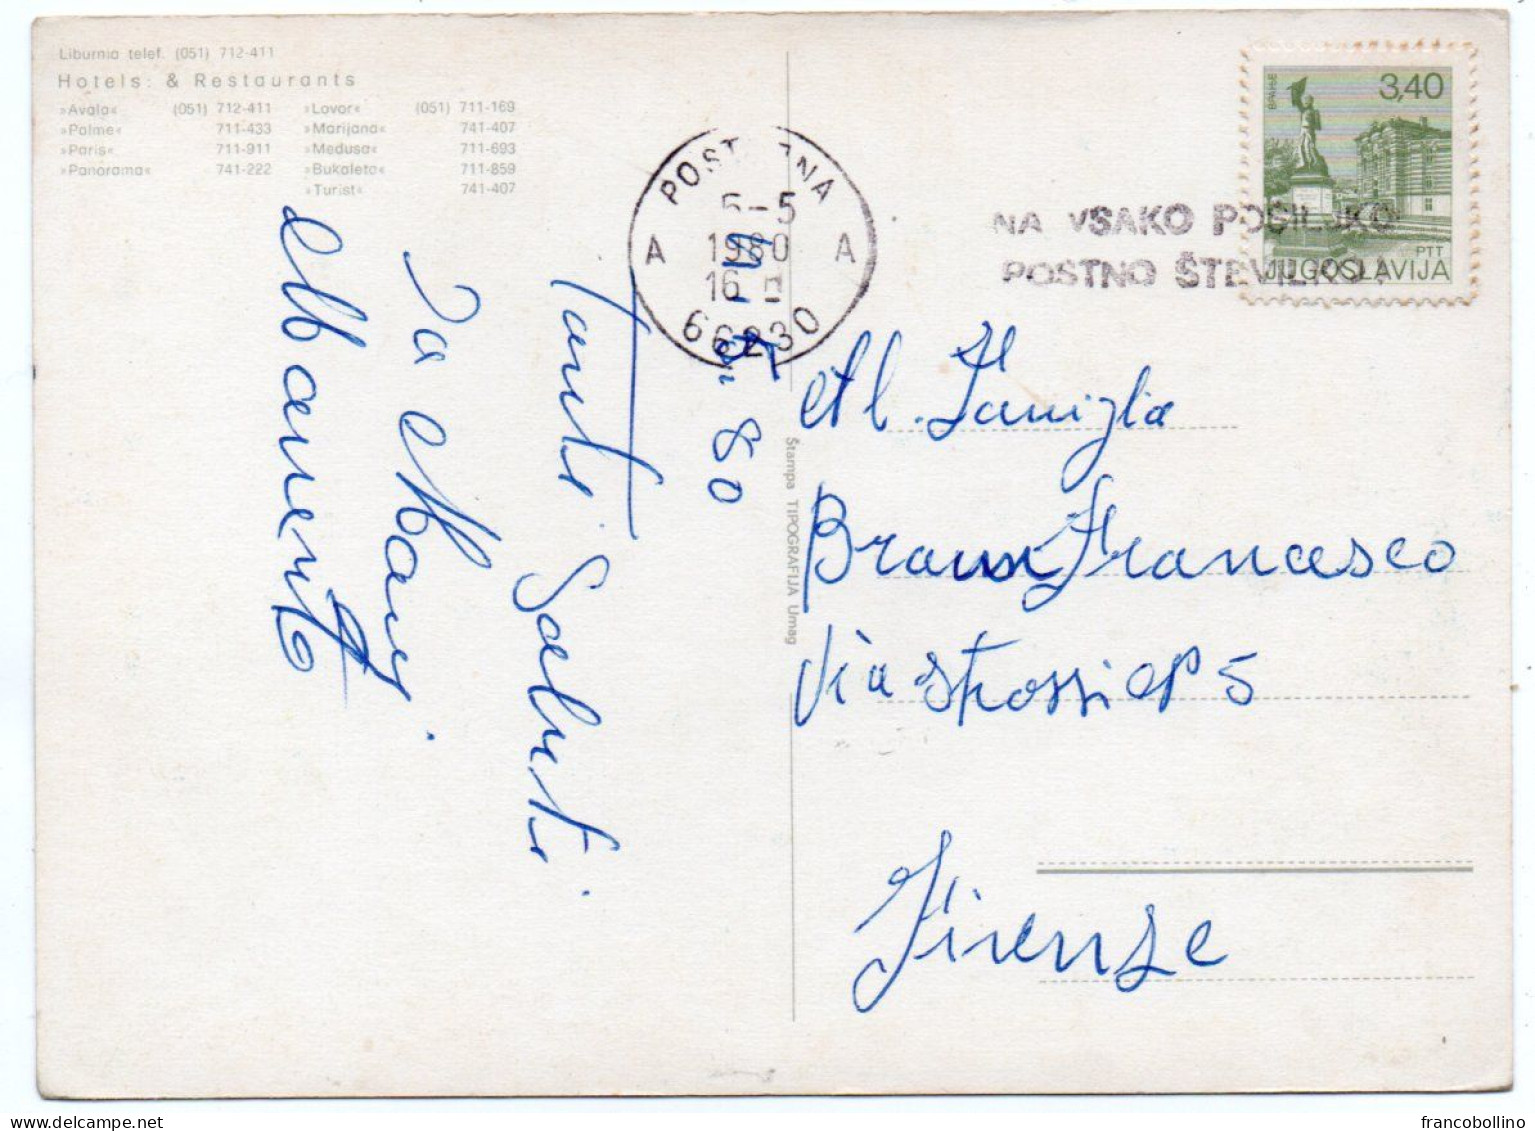 Liburnia telef. (051) 712-411
Hotels: & Restaurants
»Avala« (051) 712-411 »Lovor« (051) 711-169
»Palme« 711-433 »Marijana« 741-407
»Paris« 711-911 »Medusa« 711-693
»Panorama« 741-222 »Bukaleta« 711-859
»Turist« 741-407
POST NA
A 1980 A
16
66230
NA VSAKO POŠILJKO
POŠTNO ŠTEVILKO!
ВРАЊЕ
3,40
PTT
JUGOSLAVIJA
80
Tanti Saluti
Da
Štampa TIPOGRAFIJA Umag
Al. Famiglia
Francesco
Via Strozzi N° 5
Firenze
francobollino